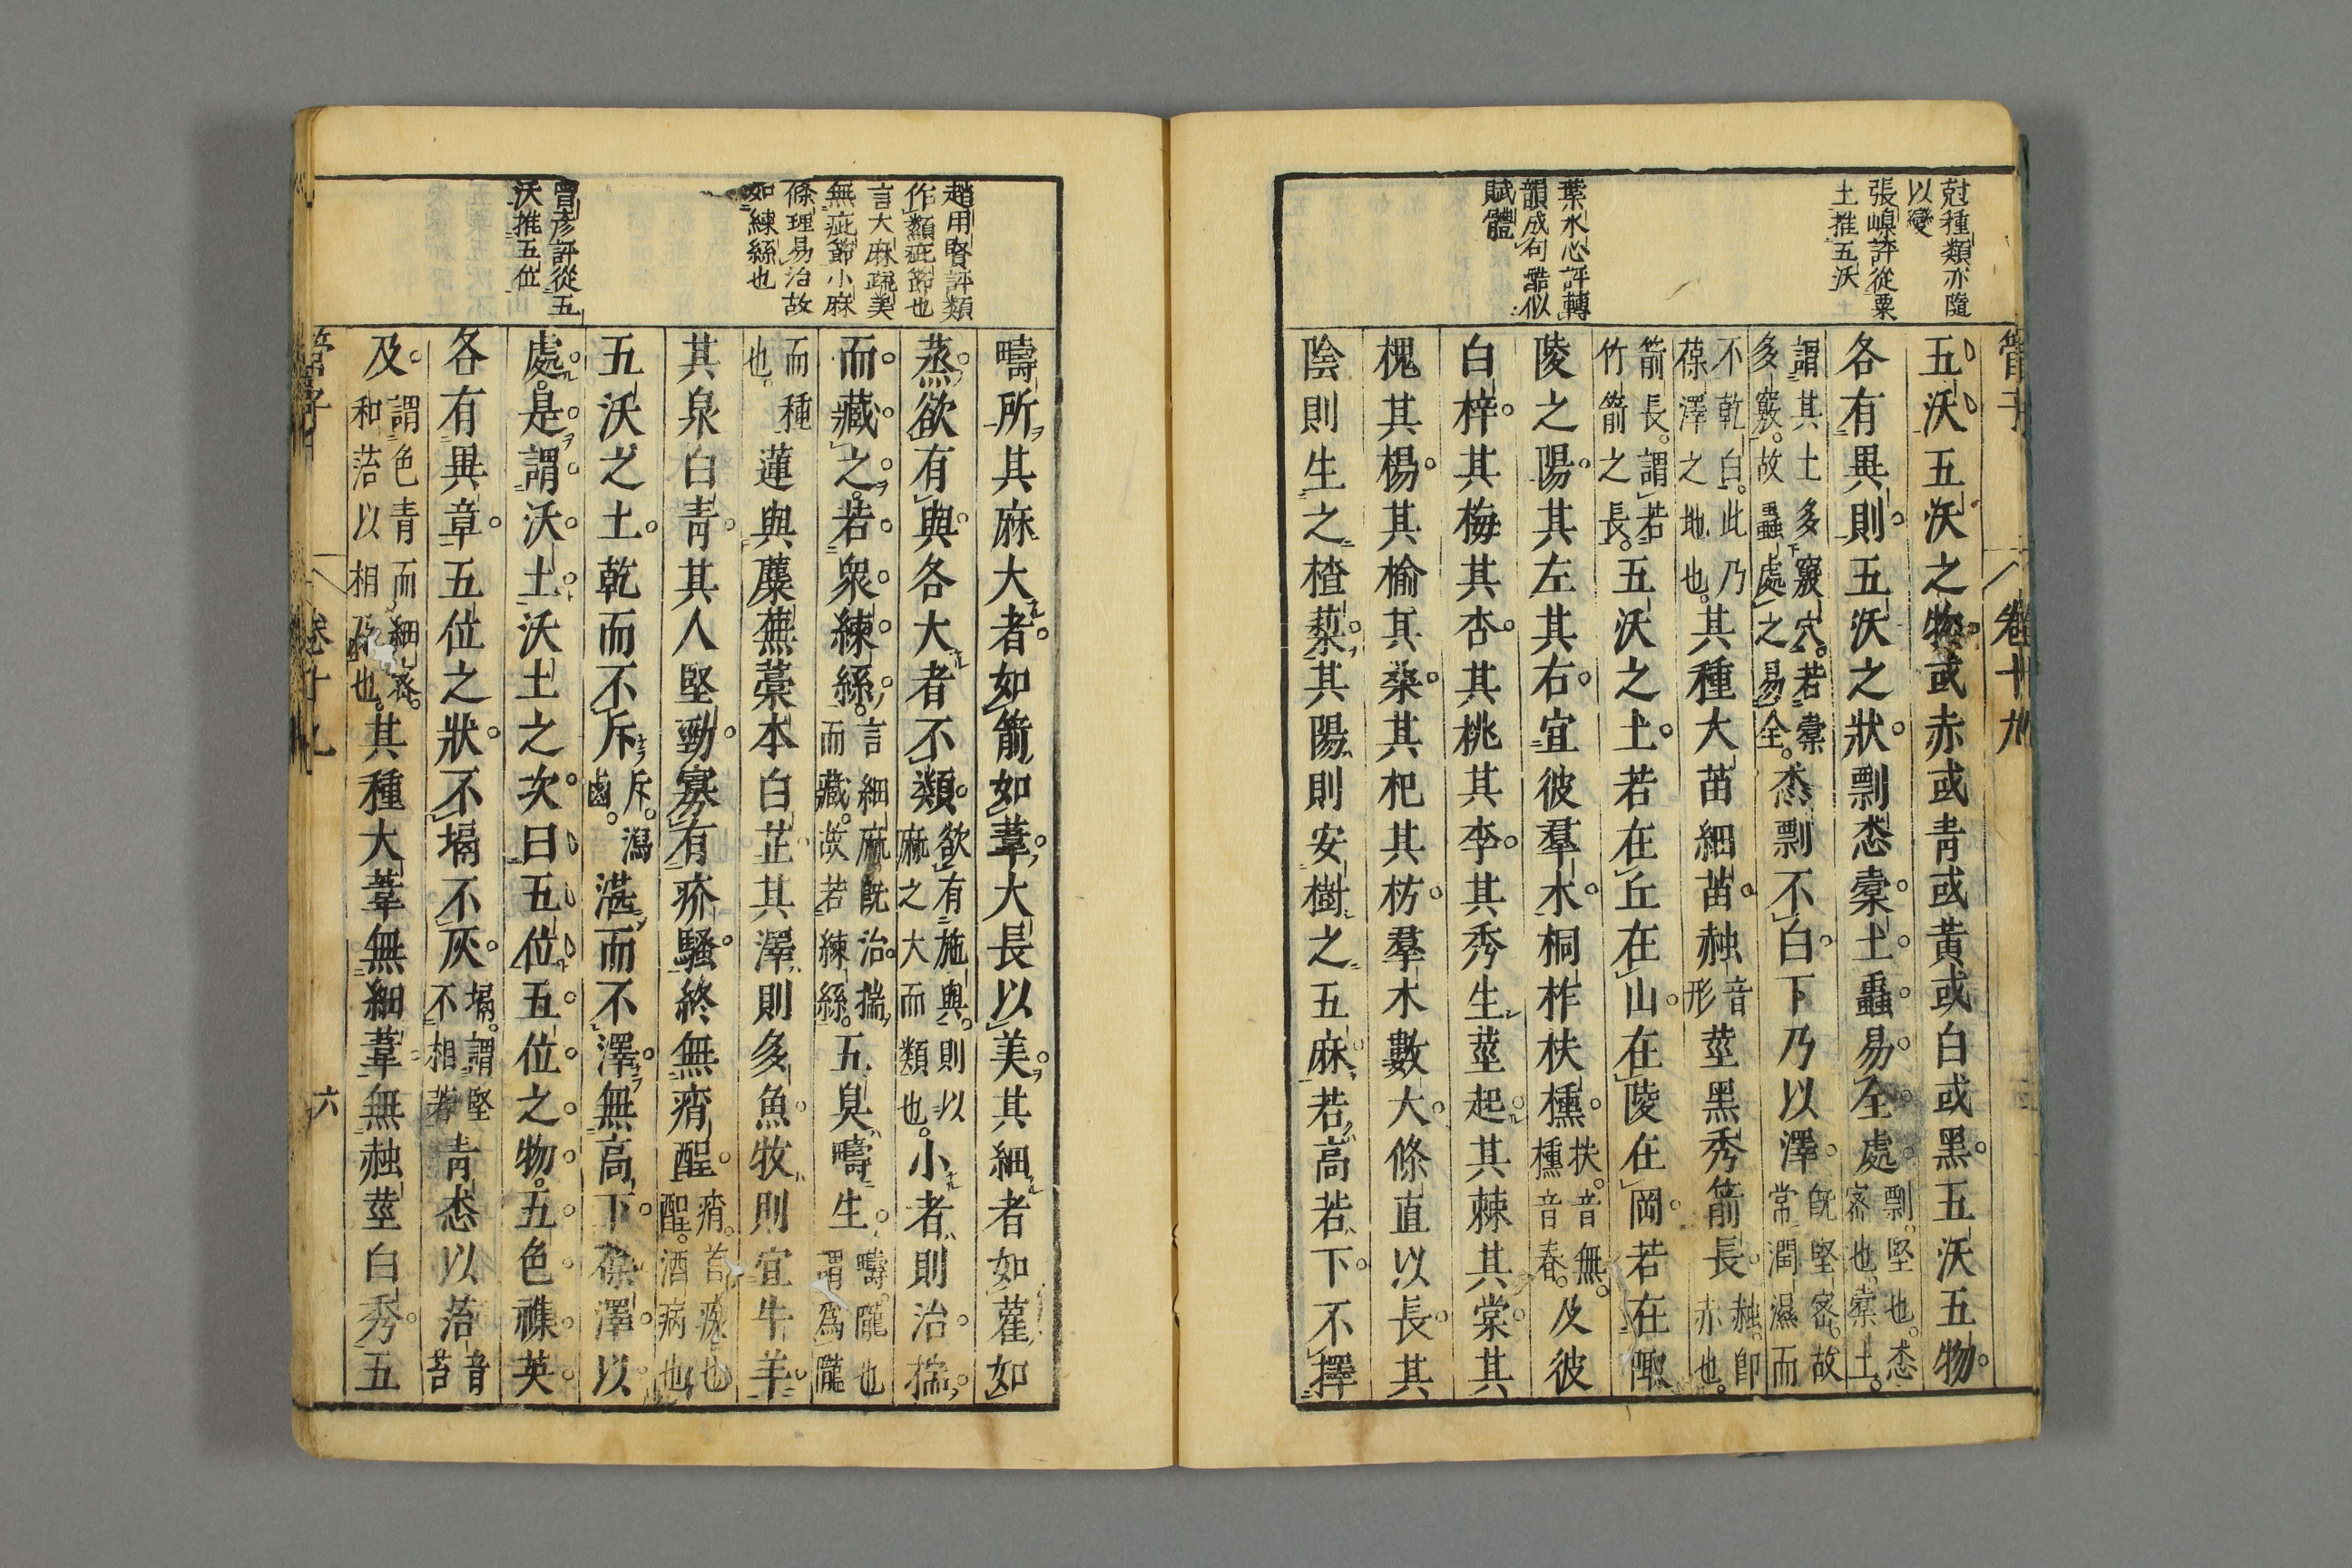 管子
卷十九
尅種類亦隨
以變
張嵲評從粟
土推五沃
葉水心評轉
韻成句酷似
賦體
五沃五沃之物或赤或青或黃或白或黑五沃五物
各有異則五沃之狀剽怸橐土蟲易全處剽堅也怸密也橐土
謂其土多竅穴若橐多竅故蟲處之易全怸剽不白下乃以澤既堅密故常潤濕而
不乾白此乃葆澤之地也其種大苗細苗赨音形莖黑秀箭長赨即赤也
箭長謂若竹箭之長五沃之土若在丘在山在陵在岡若在陬
陵之陽其左其右宜彼羣木桐柞枎櫄扶音無櫄音春及彼
白梓其梅其杏其桃其李其秀生莖起其棘其棠其
槐其楊其榆其桑其杞其枋羣木數大條直以長其
陰則生之楂蔾其陽則安樹之五麻若高若下不擇
趙用賢評類
作纇疵節也
言大麻疏美
無疵節小麻
條理易治故
如練絲也
曾彥評從五
沃推五位
疇所其麻大者如箭如葦大長以美其細者如雚如
蒸欲有與各大者不類欲有施與則以麻之大而類也小者則治揣
而藏之若衆練絲言細麻既治揣而藏故若練絲五臭疇生疇隴也謂爲隴
而種也蓮與蘪蕪藁本白芷其澤則多魚牧則宜牛羊
其泉白青其人堅勁寡有疥騷終無痟酲痟首疾也酲酒病也
五沃之土乾而不斥斥瀉鹵湛而不澤無高下葆澤以
處是謂沃土沃土之次曰五位五位之物五色襍英
各有異章五位之狀不塥不灰塥謂堅不相著青怸以菭音苔
及謂色青而細密和菭以相及也其種大葦無細葦無赨莖白秀五
管子
卷十九
六